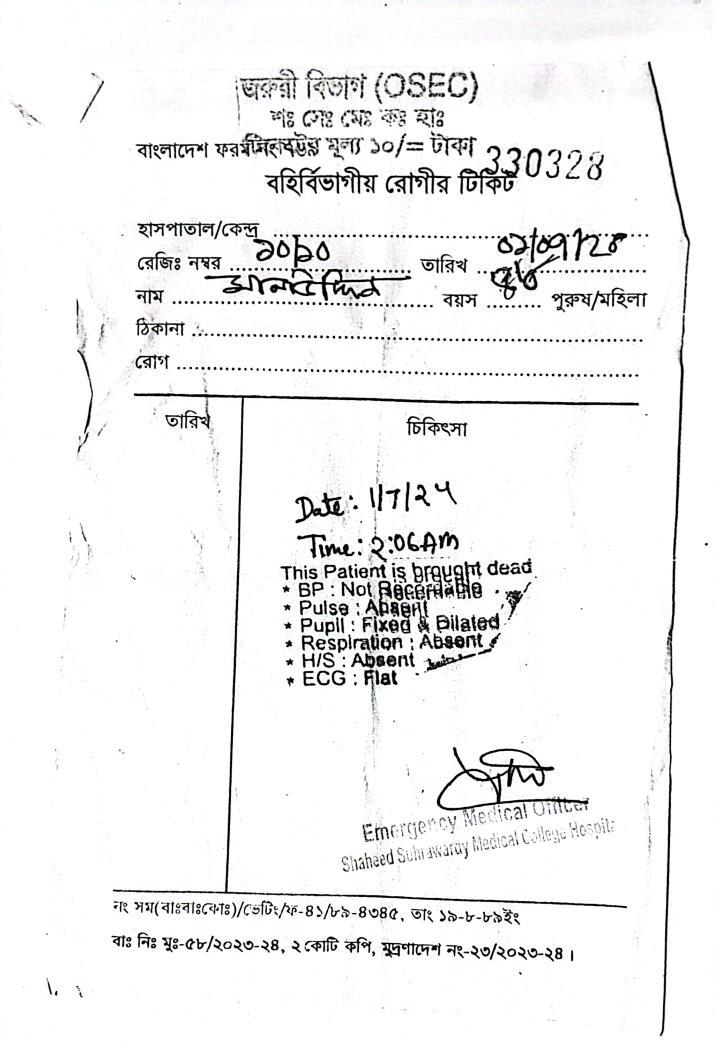 জরুরী বিভাগ (OSEC)
শঃ সোঃ মেঃ কঃ হাঃ
বাংলাদেশ ফরম মূল্য ১০/= টাকা 330328
বহির্বিভাগীয় রোগীর টিকিট
হাসপাতাল/কেন্দ্র
রেজিঃ নম্বর ১০/১০ তারিখ
নাম বয়স পুরুষ/মহিলা
ঠিকানা
রোগ
তারিখ চিকিৎসা
Date: 1/7/24
Time: 2:06AM
This Patient is brought dead
* BP : Not Recordable
* Pulse : Absent
* Pupil : Fixed & Dilated
* Respiration : Absent
* H/S : Absent
* ECG : Flat
Emergency Medical Officer
Shaheed Suhrawardy Medical College Hospital
নং সম(বাঃবাঃকোঃ)/ভেটিং/ফ-৪১/৮৯-৪৩৪৫, তাং ১৯-৮-৮৯ইং
বাঃ নিঃ মুঃ-৫৮/২০২৩-২৪, ২ কোটি কপি, মুদ্রণাদেশ নং-২৩/২০২৩-২৪।